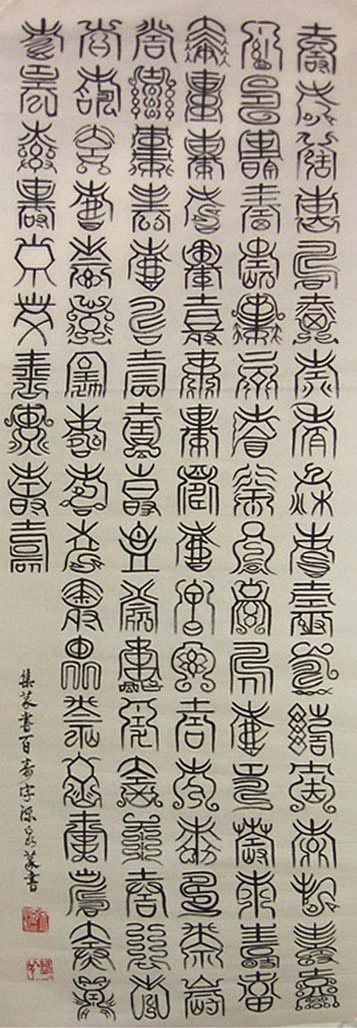 壽壽壽壽壽壽壽壽壽壽壽壽壽壽壽壽壽壽
壽壽壽壽壽壽壽壽壽壽壽壽壽壽壽壽壽壽
壽壽壽壽壽壽壽壽壽壽壽壽壽壽壽壽壽壽
壽壽壽壽壽壽壽壽壽壽壽壽壽壽壽壽壽壽
壽壽壽壽壽壽壽壽壽壽壽壽壽壽壽壽壽壽
壽壽壽壽壽壽壽壽壽壽
集篆書百壽字泉篆書